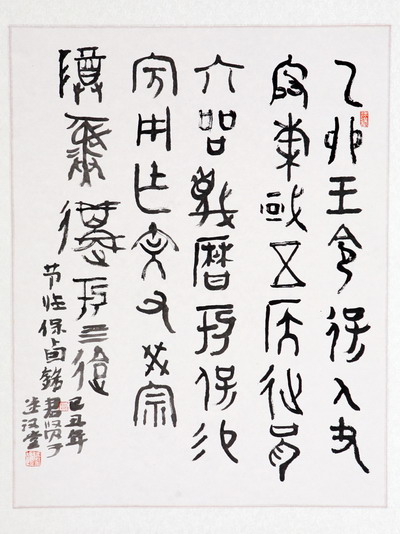 乙卯王令保及
殷東或五侯征兄
六品蔑曆于保易
宾用乍文父癸宗
尊彝遘于四
节临保卣銘
己丑年
君贤于
汉堂